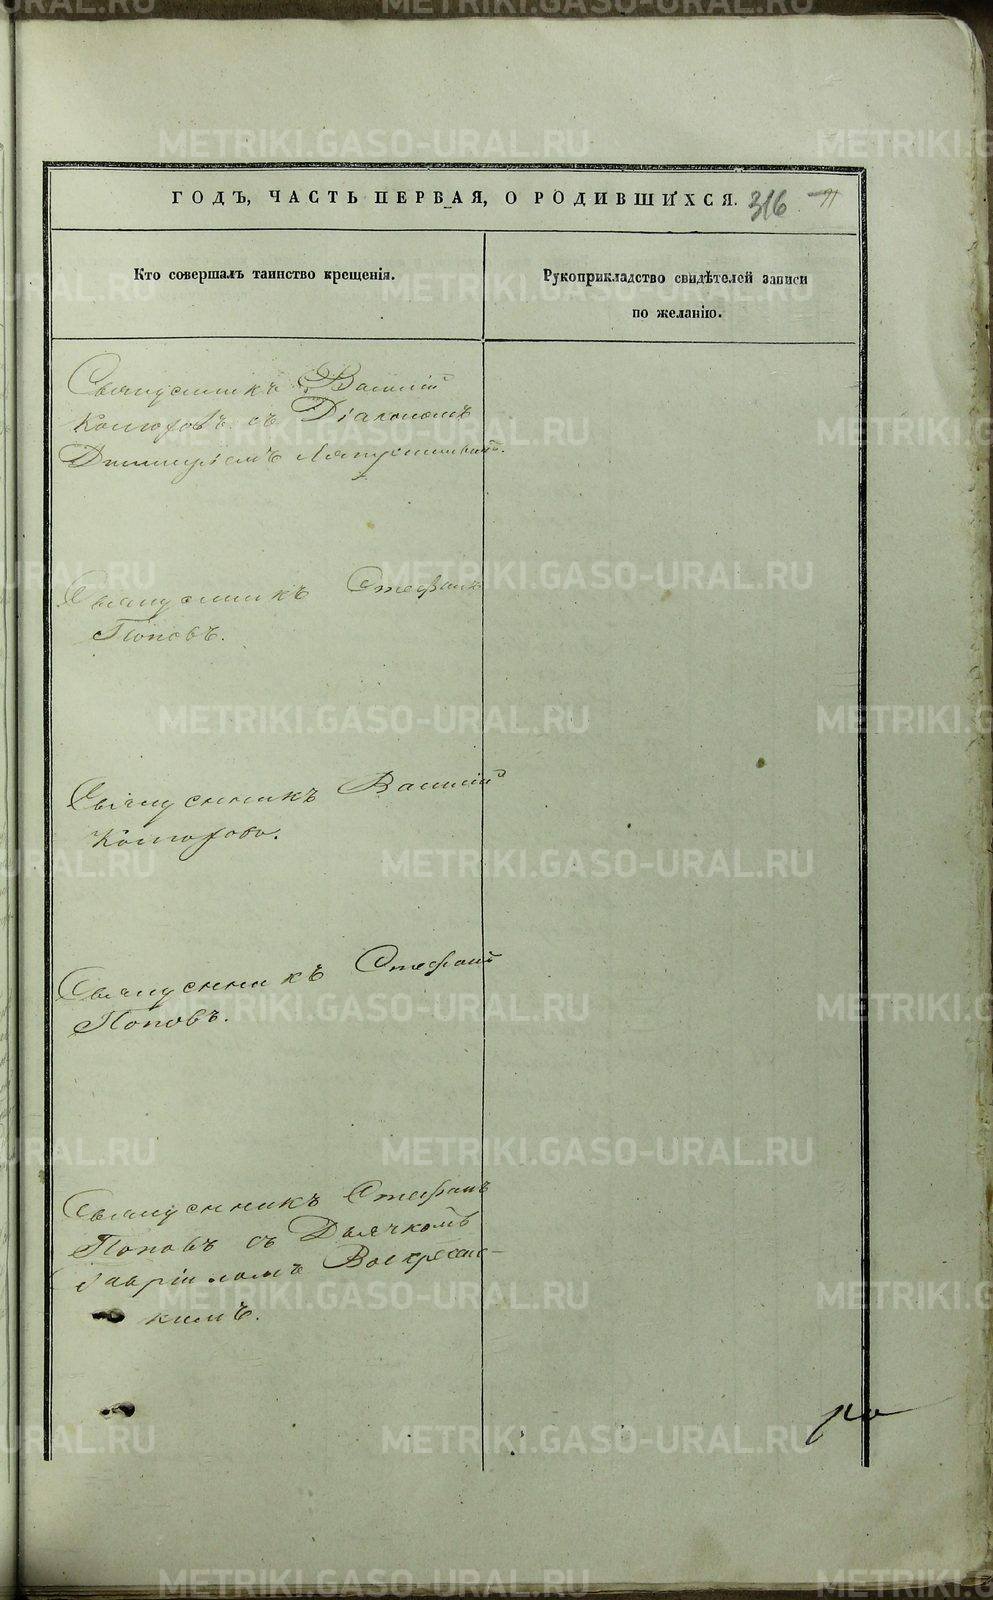 ГОДЪ, ЧАСТЬ ПЕРВАЯ, О РОДИВШИХСЯ. 316
Кто совершалъ таинство крещенія.
Рукоприкладство свидѣтелей записи
по желанію.
Священникъ Василій
съ Діакономъ
Димитріемъ
Священникъ Стефанъ
Поповъ.
Священникъ Василій
Священникъ Стефанъ
Поповъ.
Священникъ Стефанъ
Поповъ съ Дьячкомъ
Гавріиломъ Воскресенс-
кимъ.
METRIKI.GASO-URAL.RU